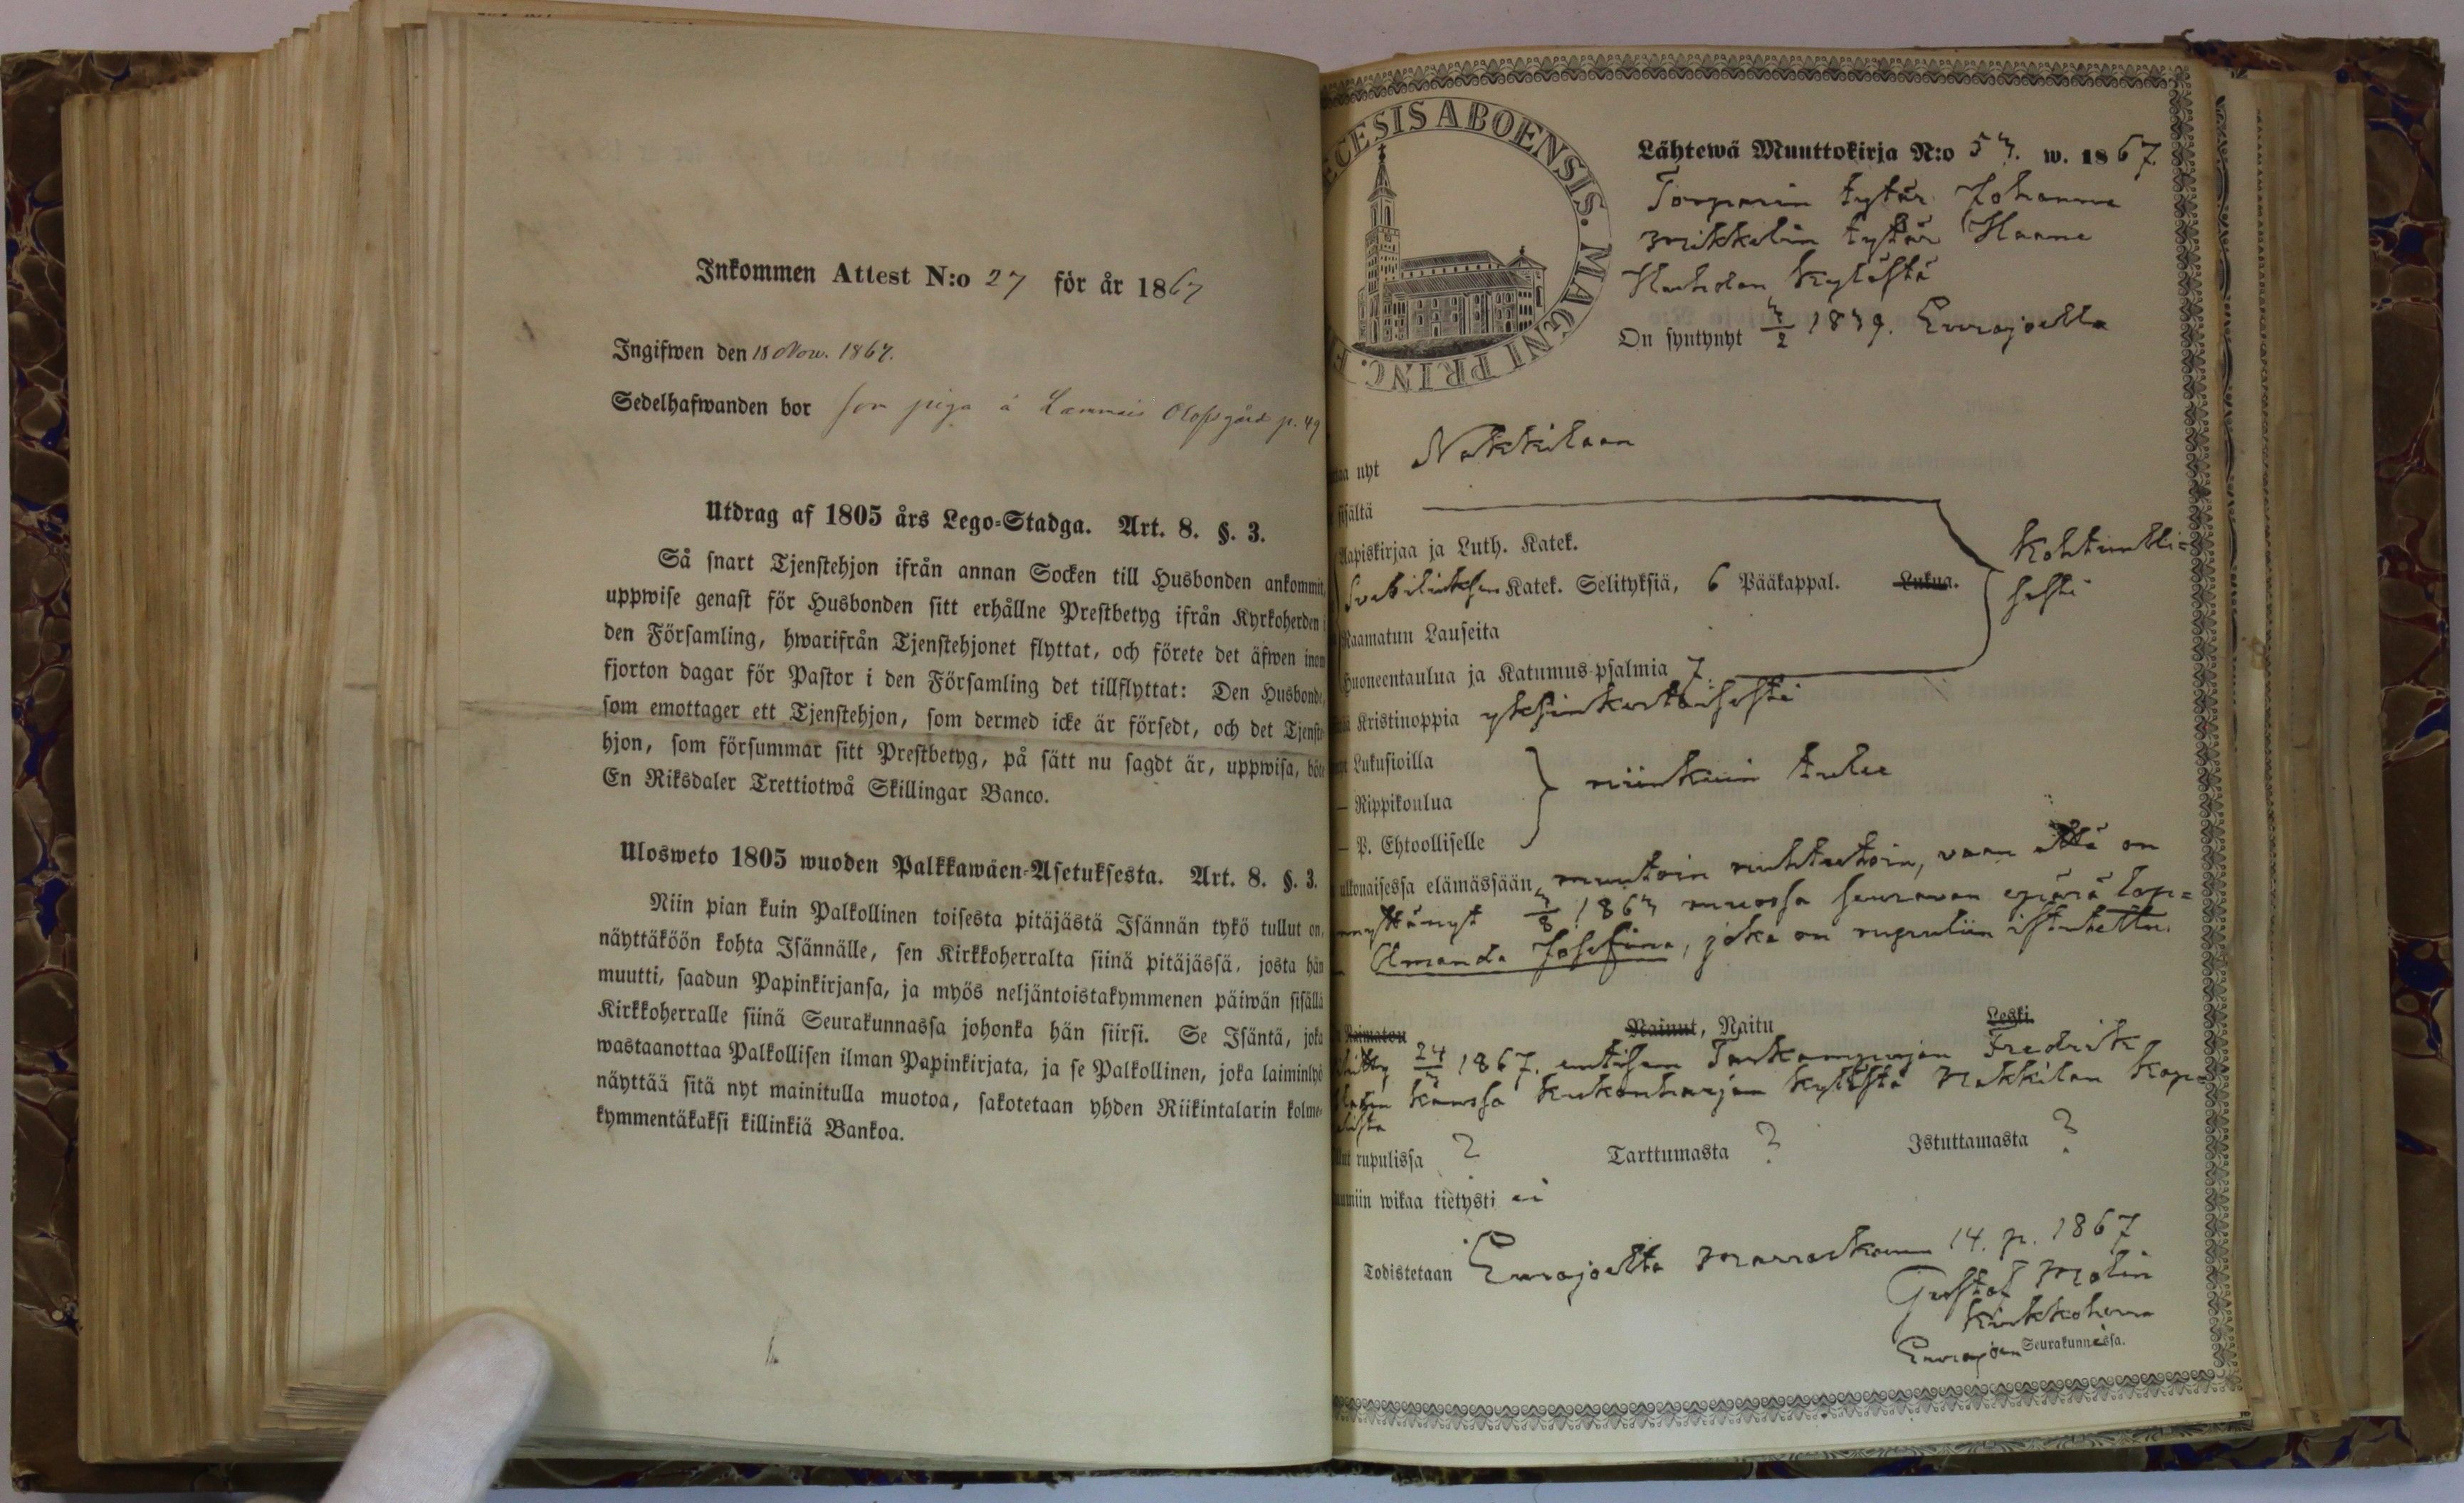 Inkommen Attest N:o 27 för år 1867
Ingifwen den 18 Now. 1867.
Sedelhafwanden bor som piga å Lammais Olofsgård p. 49
Utdrag af 1805 års Lego-Stadga. Art. 8. §. 3.
Så snart Tjenstehjon ifrån annan Socken till Husbonden ankommit,
uppwise genast för Husbonden sitt erhållne Prestbetyg ifrån Kyrkoherden i
den Församling, hwarifrån Tjenstehjonet flyttat, och förete det äfwen inom
fjorton dagar för Pastor i den Församling det tillflyttat: Den Husbonde,
som emottager ett Tjenstehjon, som dermed icke är försedt, och det Tjenste-
hjon, som försummar sitt Prestbetyg, på sätt nu sagdt är, uppwisa, böte
En Riksdaler Trettiotwå Skillingar Banco.
Ulosweto 1805 wuoden Palkkawäen-Asetuksesta. Art. 8. §. 3.
Niin pian kuin Palkollinen toisesta pitäjästä Isännän tykö tullut on,
näyttäköön kohta Isännälle, sen Kirkkoherralta siinä pitäjässä, josta hän
muutti, saadun Papinkirjansa, ja myös neljäntoistakymmenen päiwän sisällä
Kirkkoherralle siinä Seurakunnassa johonka hän siirsi. Se Isäntä, joka
wastaanottaa Palkollisen ilman Papinkirjata, ja se Palkollinen, joka laiminlyö
näyttää sitä nyt mainitulla muotoa, sakotetaan yhden Riikintalarin kolme-
kymmentäkaksi killinkiä Bankoa.
ECESIS ABOENSIS. MAGNI PRINC. F
Lähtewä Muuttokirja N:o 57. w. 1867.
Torparin tytär Johanna
Mikkelin tytär Hanne
kylästä
On syntynyt 7/2 1839. Eurajoella
nyt Nakkilaan
sisältä
Aapiskirjaa ja Luth. Katek.
Svebiliuksen Katek. Selityksiä, 6 Pääkappal. Lukua.
Kohtuulli=
sesti
Raamatun Lauseita
Huoneentaulua ja Katumus-psalmia 7.
Kristinoppia yksinkertaisesti
Lukusioilla
— Rippikoulua
— P. Ehtoolliselle
niinkuin tulee
ulkonaisessa elämässään, muutoin nuhteetoin, vaan että on
1867 seuraavan epärä lap=
Amanda Josefina, joka on rupuliin istutettu.
Naimaton Nainut, Naitu Leski.
24/ 1867. entisen Fredrik
kanssa kylästä Nakkilan Kap=
rupulissa ? Tarttumasta ? Istuttamasta ?
wikaa tietysti ei
Todistetaan Eurajoelta Marraskuun 14. p. 1867
Gustaf Molin
Kirkkoherra
Eurajoen Seurakunnassa.